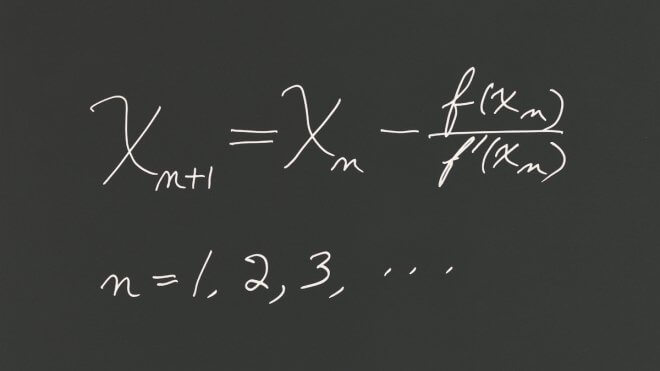 Xₙ₊₁ = Xₙ − f(Xₙ)/f'(Xₙ)
n = 1, 2, 3, ...